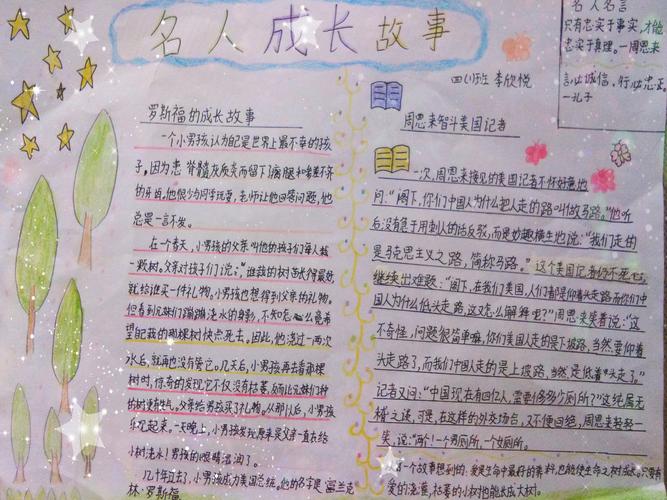 名人成长故事
名人名言
只有忠实于事实,才能
忠实于真理。一周恩来
言必诚信,行必忠正。
一孔子
四(1)班 李欣悦
罗斯福的成长故事
一个小男孩认为自己是世界上最不幸的孩
子,因为患脊髓灰质炎而留下了瘸腿和参差不齐
的牙齿。他很少与同学玩耍,老师让他回答问题,他
总是一言不发。
在一个春天,小男孩的父亲叫他的孩子们每人栽
一颗树。父亲对孩子们说:“谁栽的树苗长得最好,
就给谁买一件礼物。小男孩也想得到父亲的礼物。
但看到兄妹们蹦蹦跳跳浇水的身影,不知怎么竟希
望自己栽的那棵树快点死去。因此,他浇过一两次
水后,就再也没有管它。几天后,小男孩再去看那棵
树时,惊奇的发现它不仅没有枯萎,
的树更有生气。父亲给男孩买了礼物。从那以后,小男孩
乐观起来。一天晚上,小男孩发现原来是父亲一直在给
小树浇水!男孩的眼睛湿润了。
几十年过去了,小男孩成为美国总统。他的名字是富兰克
林·罗斯福
周恩来智斗美国记者
一次,周恩来接见的美国记者不怀好意地
问:“阁下,你们中国人为什么把人走的路叫做马路。”他听
后没有急于用刺人的话反驳,而是妙趣横生地说:“我们走的
是马克思主义之路,简称马路。”这个美国记者仍不死心,
继续出难题:“阁下,在我们美国,人们都是仰着头走路,而你们中
国人为什么低头走路,这又怎么解释呢?”周恩来笑着说:“这
不奇怪,问题很简单嘛,你们美国人走的是下坡路,当然要仰着
头走路了,而我们中国人走的是上坡路,当然是低着头走了。”
记者又问:“中国现在有四亿人,需要修多少个厕所?”这纯属无
稽之谈,可是,在这样的外交场合,又不便回绝,周恩来轻轻一
笑,说:“两个!一个男厕所,一个女厕所。
一个故事想到的:爱是生命中最好的养料,也能使生命之树
爱的浇灌,枯萎的小树也能长成大树。